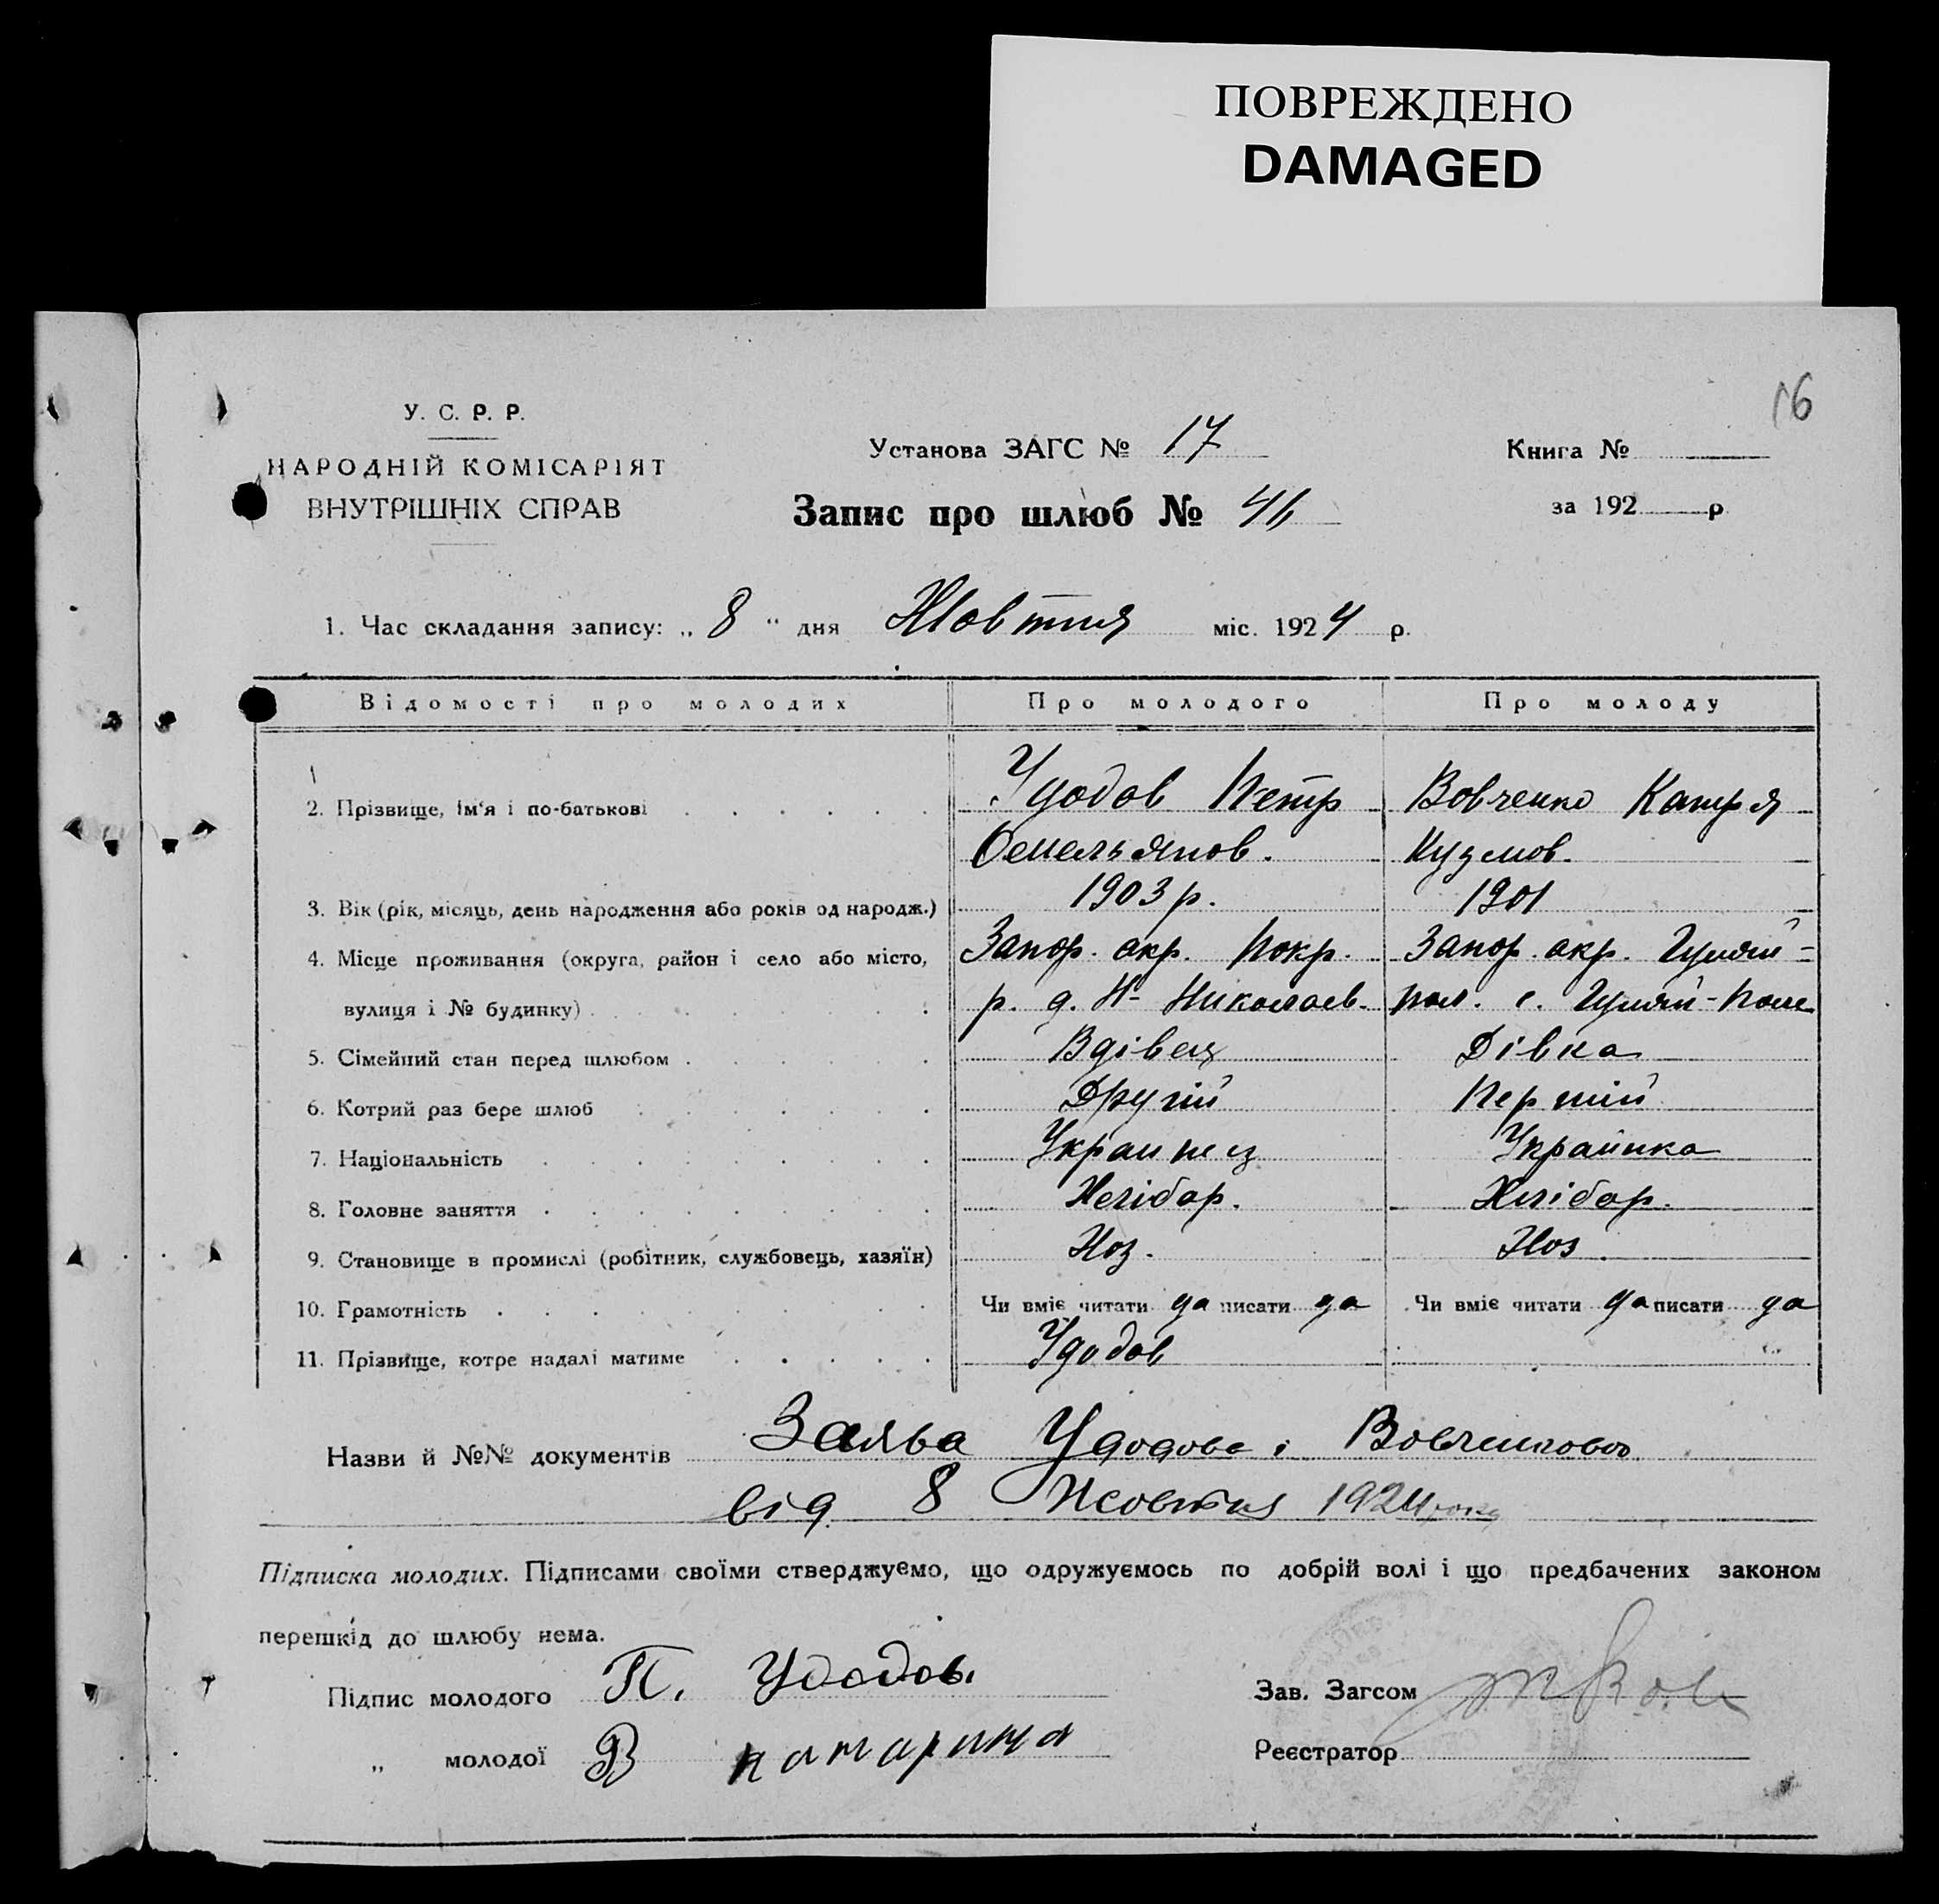 ПОВРЕЖДЕНО
DAMAGED
16
У. С. Р. Р.
НАРОДНІЙ КОМІСАРІЯТ
ВНУТРІШНІХ СПРАВ
Установа ЗАГС № 17
Запис про шлюб № 46
Книга №
за 192 р
1. Час складання запису: „ 8 “ дня Жовтня міс. 1924 р.
Відомості про молодих Про молодого Про молоду
2. Прізвище, ім‘я і по-батькові Удодов Петр Вовченко Катря
Омельянов. Кузмов.
3. Вік (рік, місяць, день народження або років од народж.) 1903 р. 1901
4. Місце проживання (округа, район і село або місто, Запор. окр. Покр. Запор. окр. Гуляй-
вулиця і № будинку) р. д. Н-Николаев. пол. с. Гуляй-Поле
5. Сімейний стан перед шлюбом Вдівец Дівка
6. Котрий раз бере шлюб Другій Перший
7. Національність Украинец Украйнка
8. Головне заняття Хлібор. Хлібор.
9. Становище в промислі (робітник, службовець, хазяїн) Хоз. Хоз.
10. Грамотність Чи вміє читати да писати да Чи вміє читати да писати да
11. Прізвище, котре надалі матиме Удодов
Назви й №№ документів Заява Удодова і Вовченково
від 8 Жовтня 1924 року
Підписка молодих. Підписами своїми стверджуємо, що одружуємось по добрій волі і що предбачених законом
перешкід до шлюбу нема.
Підпис молодого П. Удодов.
Зав. Загсом
„ молодої В катарина
Реєстратор